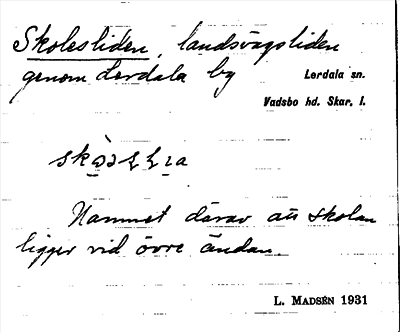 Skolesliden, landsvägsliden
genom Lerdala by
Lerdala sn.
Vadsbo hd. Skar. l.
Namnet därav att skolan
ligger vid övre ändan
L. MADSÉN 1931